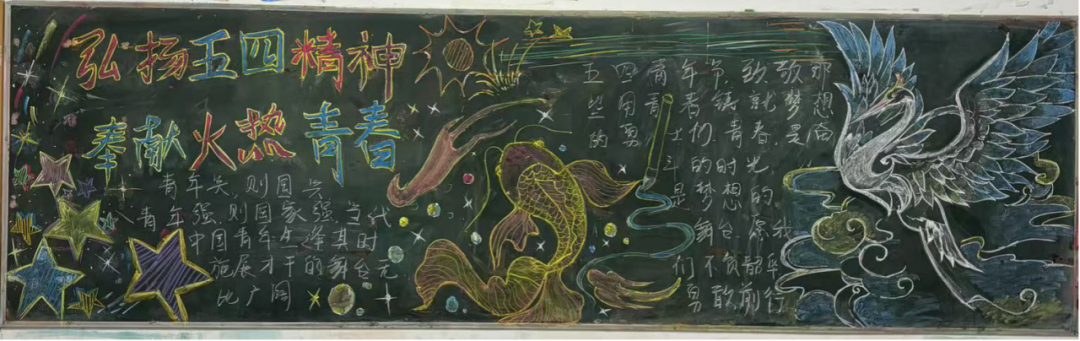 弘扬五四精神
奉献火热青春
青年兴,则国兴
青年强,则国家强当代
中国青年生逢其时
施展才干的舞台无
比广阔
五四青年节致敬那
些用青春铸就梦想
的勇士们,青春是奋
斗的时光
是梦想的
舞台,愿我
们不负韶华
勇敢前行